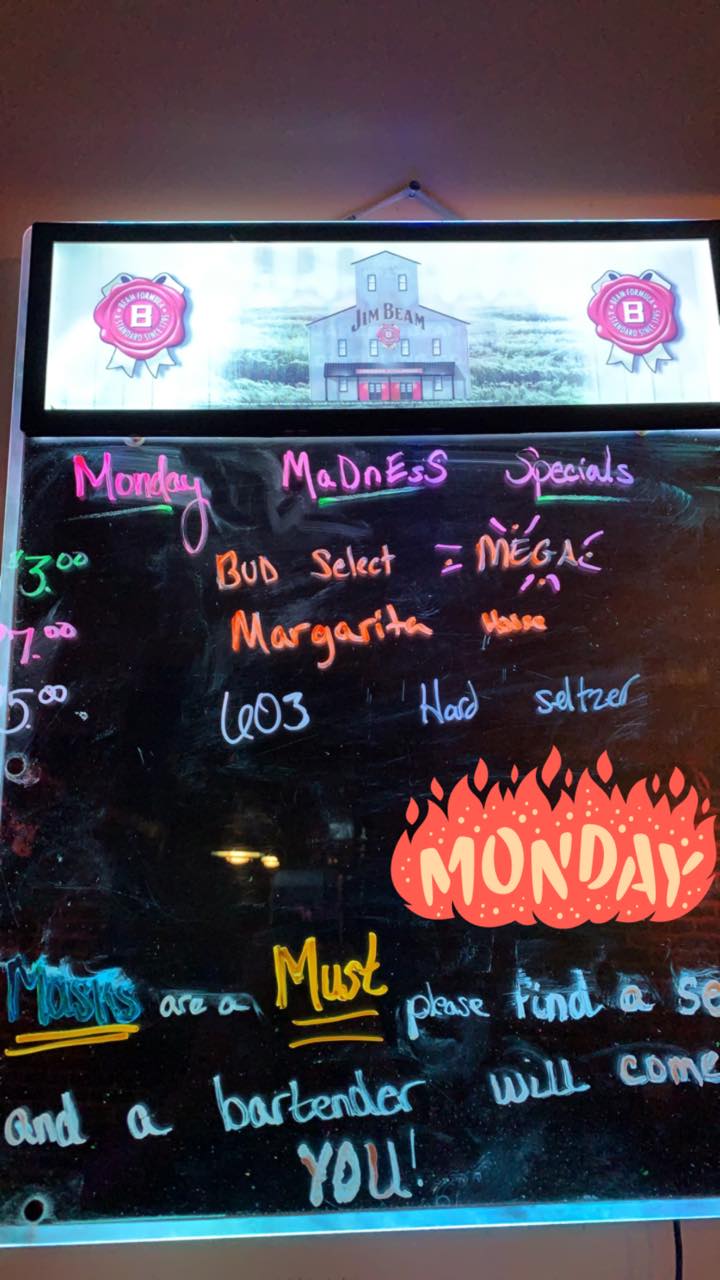 BEAM FORMULA
B
A STANDARD SINCE 1795
JIM BEAM
BEAM FORMULA
B
A STANDARD SINCE 1795
Monday MaDnEsS Specials
$3.00 BUD Select MEGA
7.00 Margarita House
5.00 603 Hard seltzer
MONDAY
Masks are a Must please find a se
and a bartender will come
YOU!